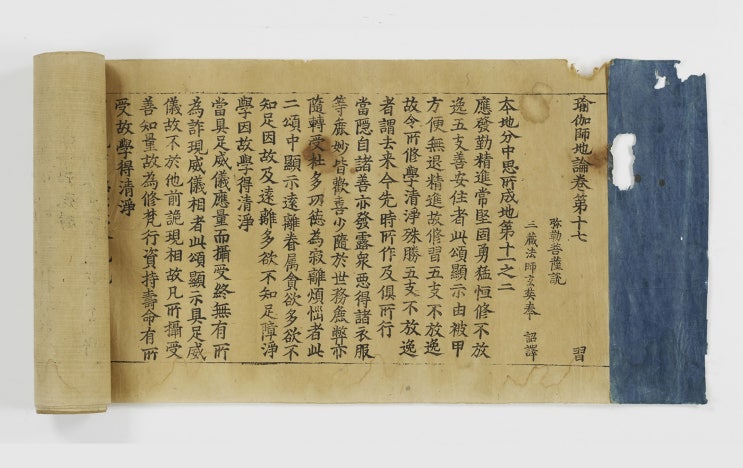 瑜伽師地論卷第十七 習
弥勒菩薩說
三蔵法師玄奘奉 詔譯
本地分中思所成地第十一之二
應發勤精進常堅固勇猛恒修不放
逸五支善安住者此頌顯示由被甲
方便無退精進故修習五支不放逸
故令所修學清淨殊勝五支不放逸
者謂去来今先時所作及俱所行
當隱自諸善亦發露衆惡得諸衣服
等麁妙皆歡喜少隨於世務麁弊亦
隨轉受杜多功德為寂離煩惱者此
二頌中顯示遠離眷属貪欲多欲不
知足因故及遠離多欲不知足障淨
學因故學得清淨
當具足威儀應量而攝受終無有所
為詐現威儀相者此頌顯示具足威
儀故不於他前詭現相故凡所攝受
善知量故為修梵行資持壽命有所
受故學得清淨